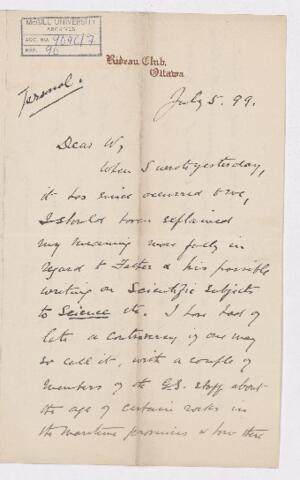 McGILL UNIVERSITY
ARCHIVES
ACC. NO.
REF.
Rideau Club,
Ottawa
Personal.
July 5. 99.
Dear W,
When I wrote yesterday,
it has since occurred to me,
I should have explained
my meaning more fully in
regard to Father & his possible
writing on Scientific subjects
to Science etc. I have had of
late a controversy if one may
so call it, with a couple of
members of the G.S. staff about
the age of certain rocks in
the Maritime provinces & how there